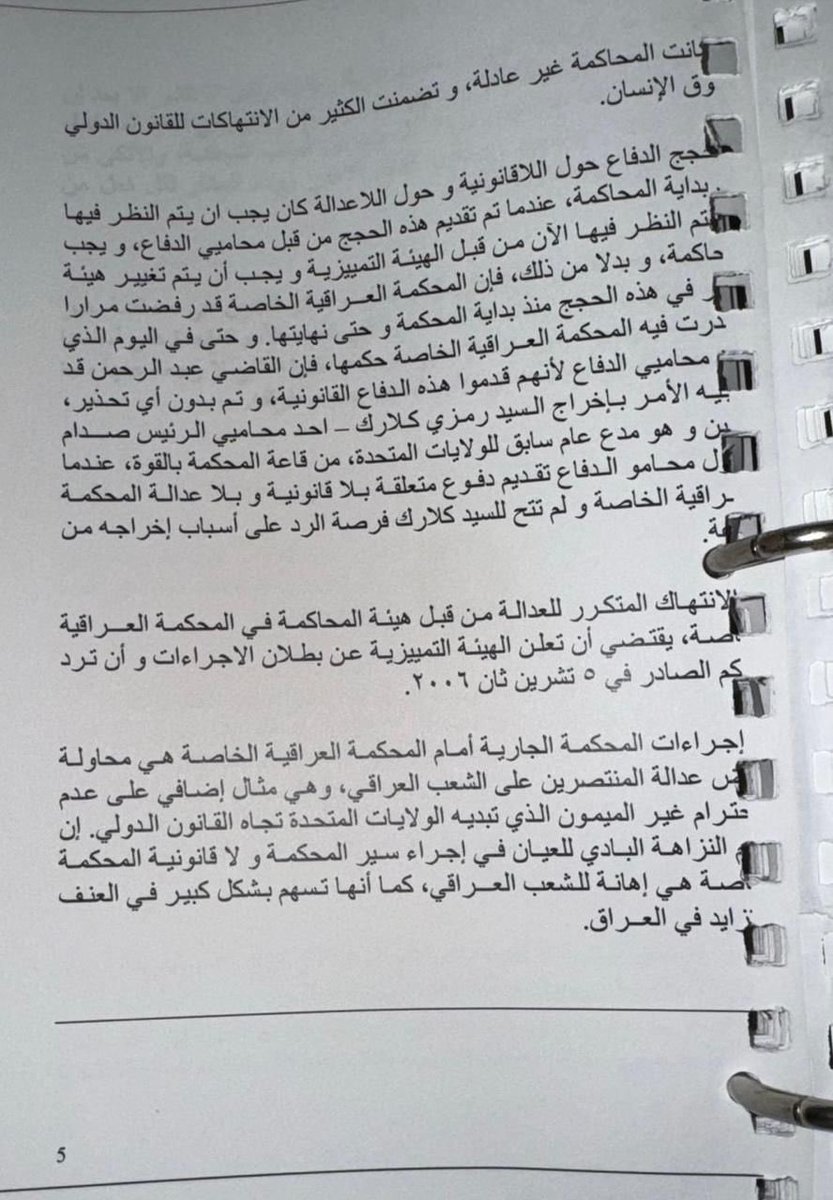 كانت المحاكمة غير عادلة، و تضمنت الكثير من الانتهاكات للقانون الدولي
وق الإنسان.
حجج الدفاع حول اللاقانونية و حول اللاعدالة كان يجب ان يتم النظر فيها
بداية المحاكمة، عندما تم تقديم هذه الحجج من قبل محاميي الدفاع، و يجب
تم النظر فيها الآن من قبل الهيئة التمييزية و يجب أن يتم تغيير هيئة
حاكمة، و بدلا من ذلك، فإن المحكمة العراقية الخاصة قد رفضت مرارا
ر في هذه الحجج منذ بداية المحكمة و حتى نهايتها. و حتى في اليوم الذي
درت فيه المحكمة العراقية الخاصة حكمها، فإن القاضي عبد الرحمن قد
محاميي الدفاع لأنهم قدموا هذه الدفاع القانونية، و تم بدون أي تحذير،
بيه الأمر بإخراج السيد رمزي كلارك – احد محاميي الرئيس صدام
ين و هو مدع عام سابق للولايات المتحدة، من قاعة المحكمة بالقوة، عندما
ل محامو الدفاع تقديم دفوع متعلقة بلا قانونية و بلا عدالة المحكمة
راقية الخاصة و لم تتح للسيد كلارك فرصة الرد على أسباب إخراجه من
عة.
الانتهاك المتكرر للعدالة من قبل هيئة المحاكمة في المحكمة العراقية
اصة، يقتضي أن تعلن الهيئة التمييزية عن بطلان الاجراءات و أن ترد
كم الصادر في ٥ تشرين ثان ٢٠٠٦.
إجراءات المحكمة الجارية أمام المحكمة العراقية الخاصة هي محاولة
ض عدالة المنتصرين على الشعب العراقي، وهي مثال إضافي على عدم
حترام غير الميمون الذي تبديه الولايات المتحدة تجاه القانون الدولي. إن
م النزاهة البادي للعيان في إجراء سير المحكمة و لا قانونية المحكمة
اصة هي إهانة للشعب العراقي، كما أنها تسهم بشكل كبير في العنف
تزايد في العراق.
5